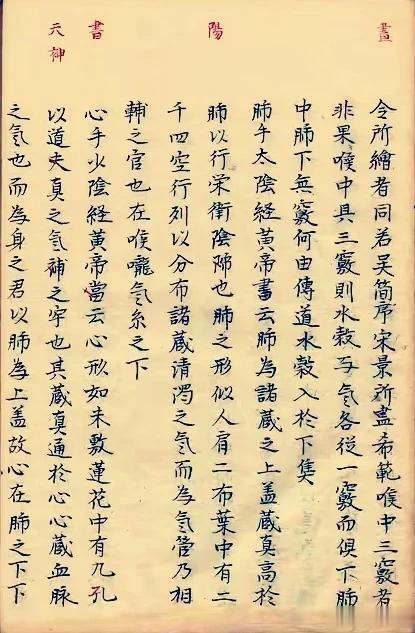 畫
令所繪者同若吴简序宋景所盡希範喉中三竅者
非果喉中具三竅則水穀与氣各從一竅而俱下肺
中肺下無竅何由傳道水穀入於下
肺手太陰経黄帝書云肺為諸蔵之上盖蔵真高於
陽
肺以行栄衛陰也肺之形似人肩二布葉中有二
千四空行列以分布諸蔵清濁之氣而為氣管乃相
輔之官也在喉嚨氣系之下
書
心手少陰経黄帝當云心形如未敷蓮花中有九孔
天神
以道夫真之氣補之宇也其蔵真通於心心蔵血脉
之氣也而為身之君以肺為上盖故心在肺之下下